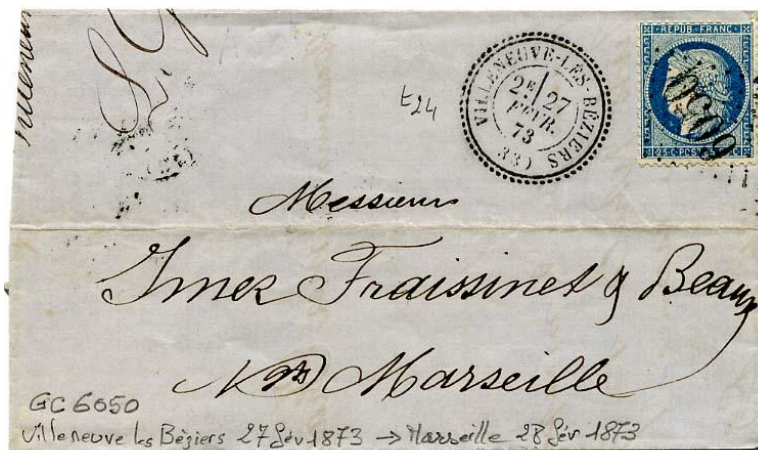 E24
VILLENEUVE-LES-BÉZIERS
2E/27
FEVR.
73
(33)
REPUB. FRANC.
25 C. POSTES 25 C.
6050
Messieurs
Fraissinet & Beaux
Marseille
GC 6050
Villeneuve les Béziers 27 fév 1873 → Marseille 28 fév 1873